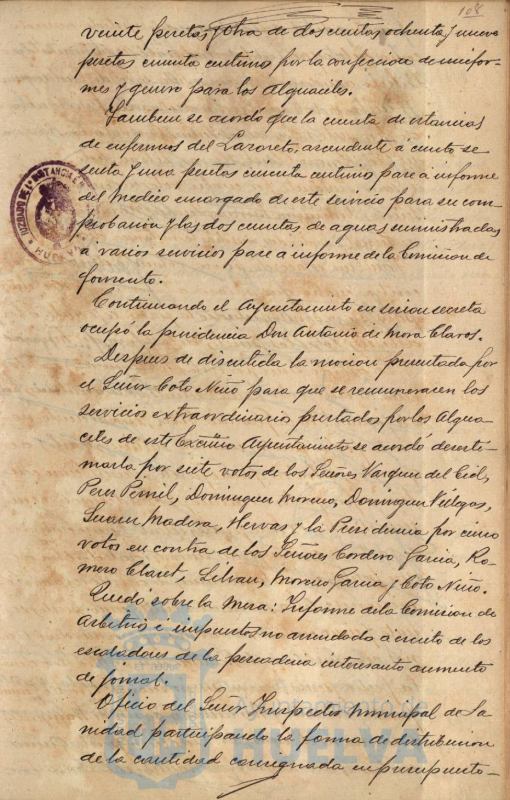 108
veinte pesetas, y otra de doscientas ochenta y nueve
pesetas cincuenta centimos por la confeccion de unifor-
mes y genero para los Alguaciles.
Tambien se acordó que la cuenta de estancias
de enfermos del Lazareto, ascendente á ciento se-
senta y una pesetas cincuenta centimos pase á informe
del Medico encargado de este servicio para su com-
probacion y las dos cuentas de aguas suministradas
á varios servicios pase á informe de la Comision de
fomento.
Continuando el Ayuntamiento en sesion secreta
ocupó la presidencia Don Antonio de Mora Claros.
Despues de discutida la mocion presentada por
el Señor Coto Niño para que se remunerasen los
servicios extraordinarios prestados por los Algua-
ciles de este Excmo Ayuntamiento se acordó desesti-
marla por siete votos de los Señores Vazquez del Cid,
Perez Pernil, Dominguez Moreno, Dominguez Villegas,
Suarez Madera, Hervas y la Presidencia por cinco
votos en contra de los Señores Cordero Garcia, Ro-
mero Claret, Silvan, Moreno Garcia y Coto Niño.
Quedó sobre la Mesa: Informe de la Comision de
Arbitrios é impuestos no arrendados á escrito de los
de la pescaderia interesando aumento
de jornal.
Oficio del Señor Inspector Municipal de Sa-
nidad participando la forma de distribucion
de la cantidad consignada en presupuesto
JUZGADO DE 1ª INSTANCIA
HUELVA
HUELVA